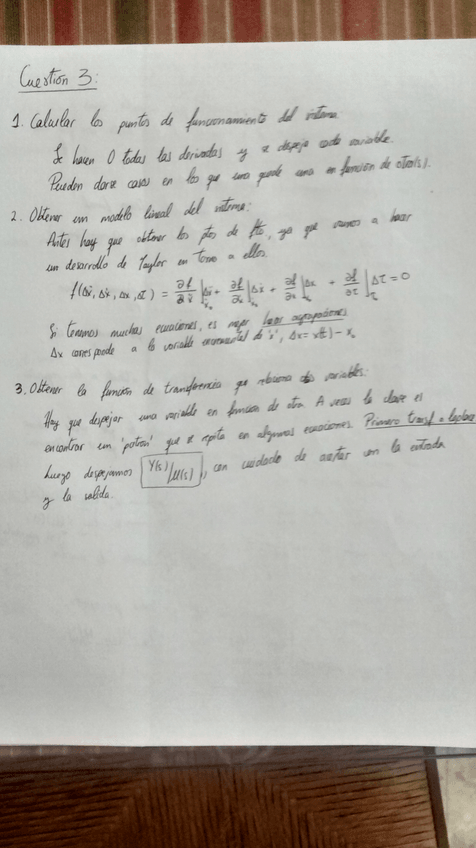 Cuestión 3:
1. Calcular los puntos de funcionamiento del sistema.
Se hacen 0 todas las derivadas y se despeja cada variable.
Pueden darse casos en los que una quede una en función de otra(s).
2. Obtener un modelo lineal del sistema:
Antes hay que obtener los ptos de fto, ya que vamos a hacer
un desarrollo de Taylor en torno a ellos.
f(Δẍ, Δẋ, Δx, Δτ) = ∂f/∂ẍ|ẍ₀ Δẍ + ∂f/∂ẋ|ẋ₀ Δẋ + ∂f/∂x|x₀ Δx + ∂f/∂τ|τ₀ Δτ = 0
Si tenemos muchas ecuaciones, es mejor hacer agrupaciones
Δx corresponde a la variable incremental de 'x', Δx = x(t) - x₀
3. Obtener la función de transferencia que relaciona dos variables:
Hay que despejar una variable en función de otra. A veces la clave es
encontrar un 'patrón' que se repita en algunas ecuaciones. Primero transf. a Laplace
Luego despejamos Y(s)/U(s), con cuidado de acertar con la entrada
y la salida.